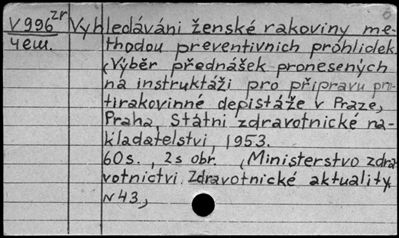 V 996 zr Vyhledáváni ženské rakoviny me-
4 em. thodou preventivnich prohlidek.
(Výběr přednášek pronesených
na instruktáži pro připravu pro-
tirakovinné depistáže v Praze)
Praha, Státni zdravotnické na-
kladatelstvi, 1953.
60s., 2s obr. (Ministerstvo zdra-
votnictvi. Zdravotnické aktuality
N 43)